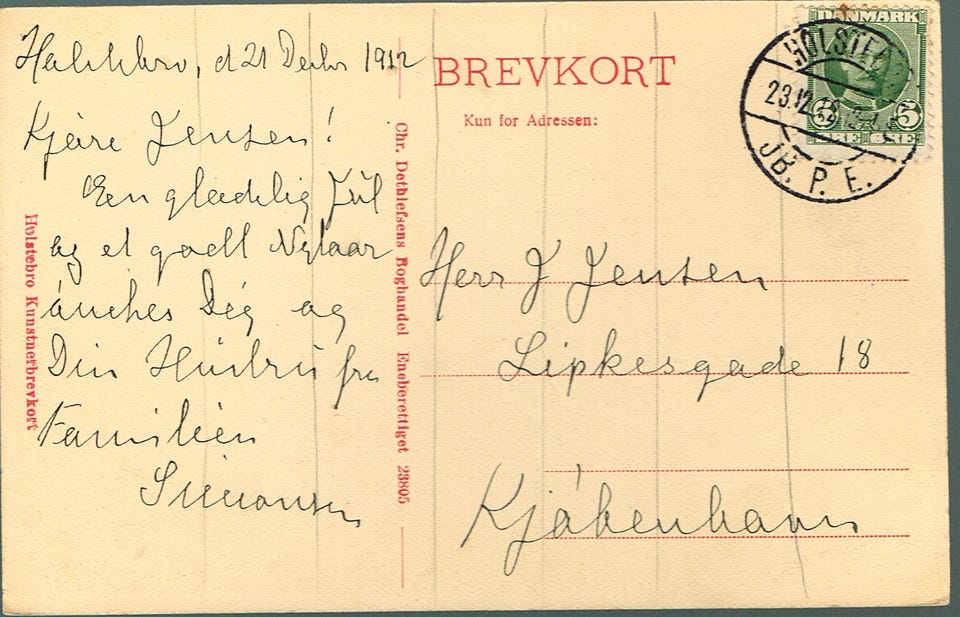 d 21 Decbr 1912
Kjære Jensen!
Een glædelig Jül
og et godt Nytaar
önskes Dig og
Din Hüstrü fra
Familien
Simonsen
Holstebro Kunstnerbrevkort
Chr. Dethlefsens Boghandel Eneberettiget 23805
BREVKORT
Kun for Adressen:
Herr J Jensen
Lipkesgade 18
Kjöbenhavn
DANMARK
5 5
ØRE ØRE
23.12.12
JB. P. E.